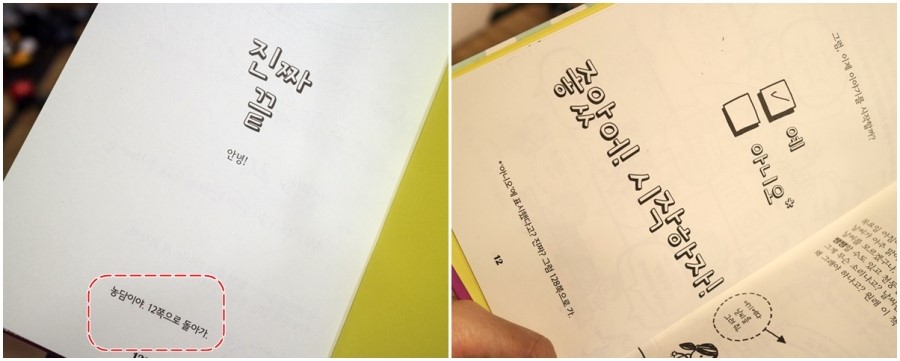 진짜
끝
안녕!
농담이야. 12쪽으로 돌아가.
그럼, 이제 이야기를 시작할까?
예
아니요*
좋았어! 시작하자!
*'아니요'에 표시했다고? 진짜? 그럼 128쪽으로 가.
12
여기에다
날씨를
그려 줘.